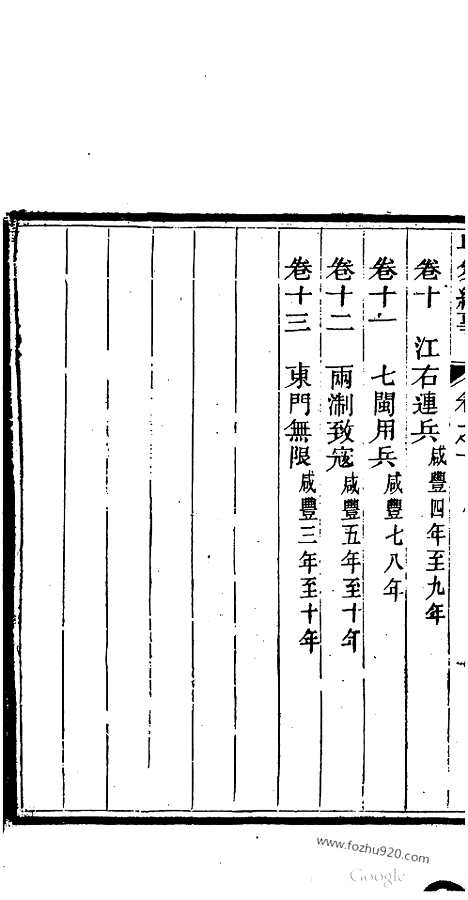 卷十 江右連兵咸豐四年至九年
卷十一 七閩用兵咸豐七八年
卷十二 兩淛致寇咸豐五年至十年
卷十三 東門無限咸豐三年至十年
www.fozhu920.com
Google